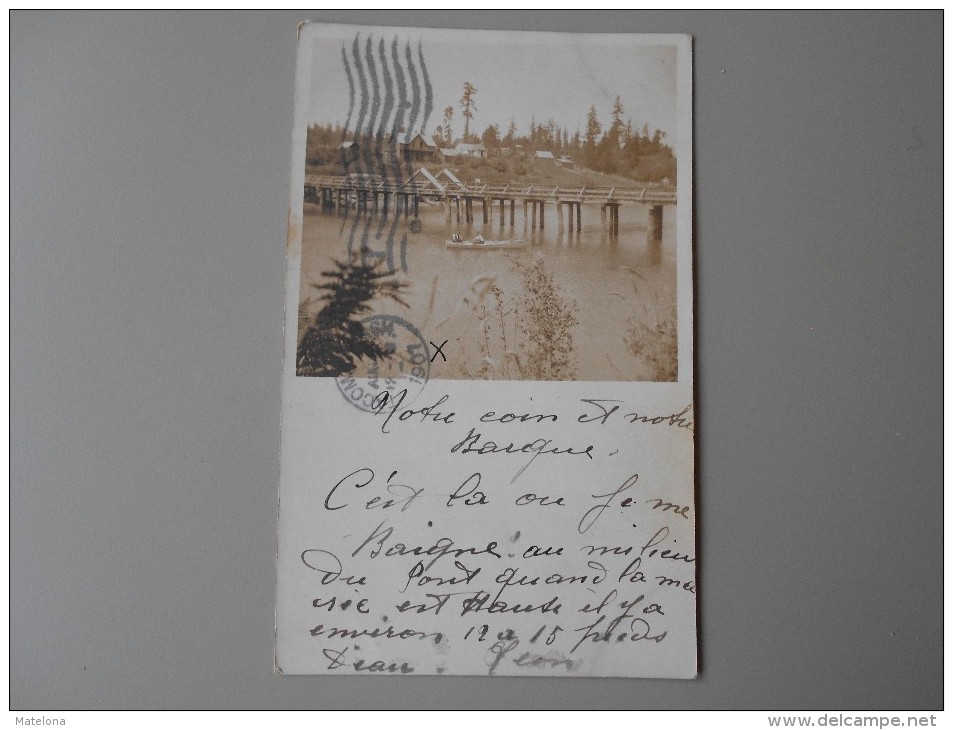 1907
X
Notre coin et notre
Barque.
C'est la ou Je me
Baigne au milieu
Du Pont quand la ma
rée est Haute il y a
environ 12 a 15 pieds
D'eau. Leon
Matelona
www.delcampe.net